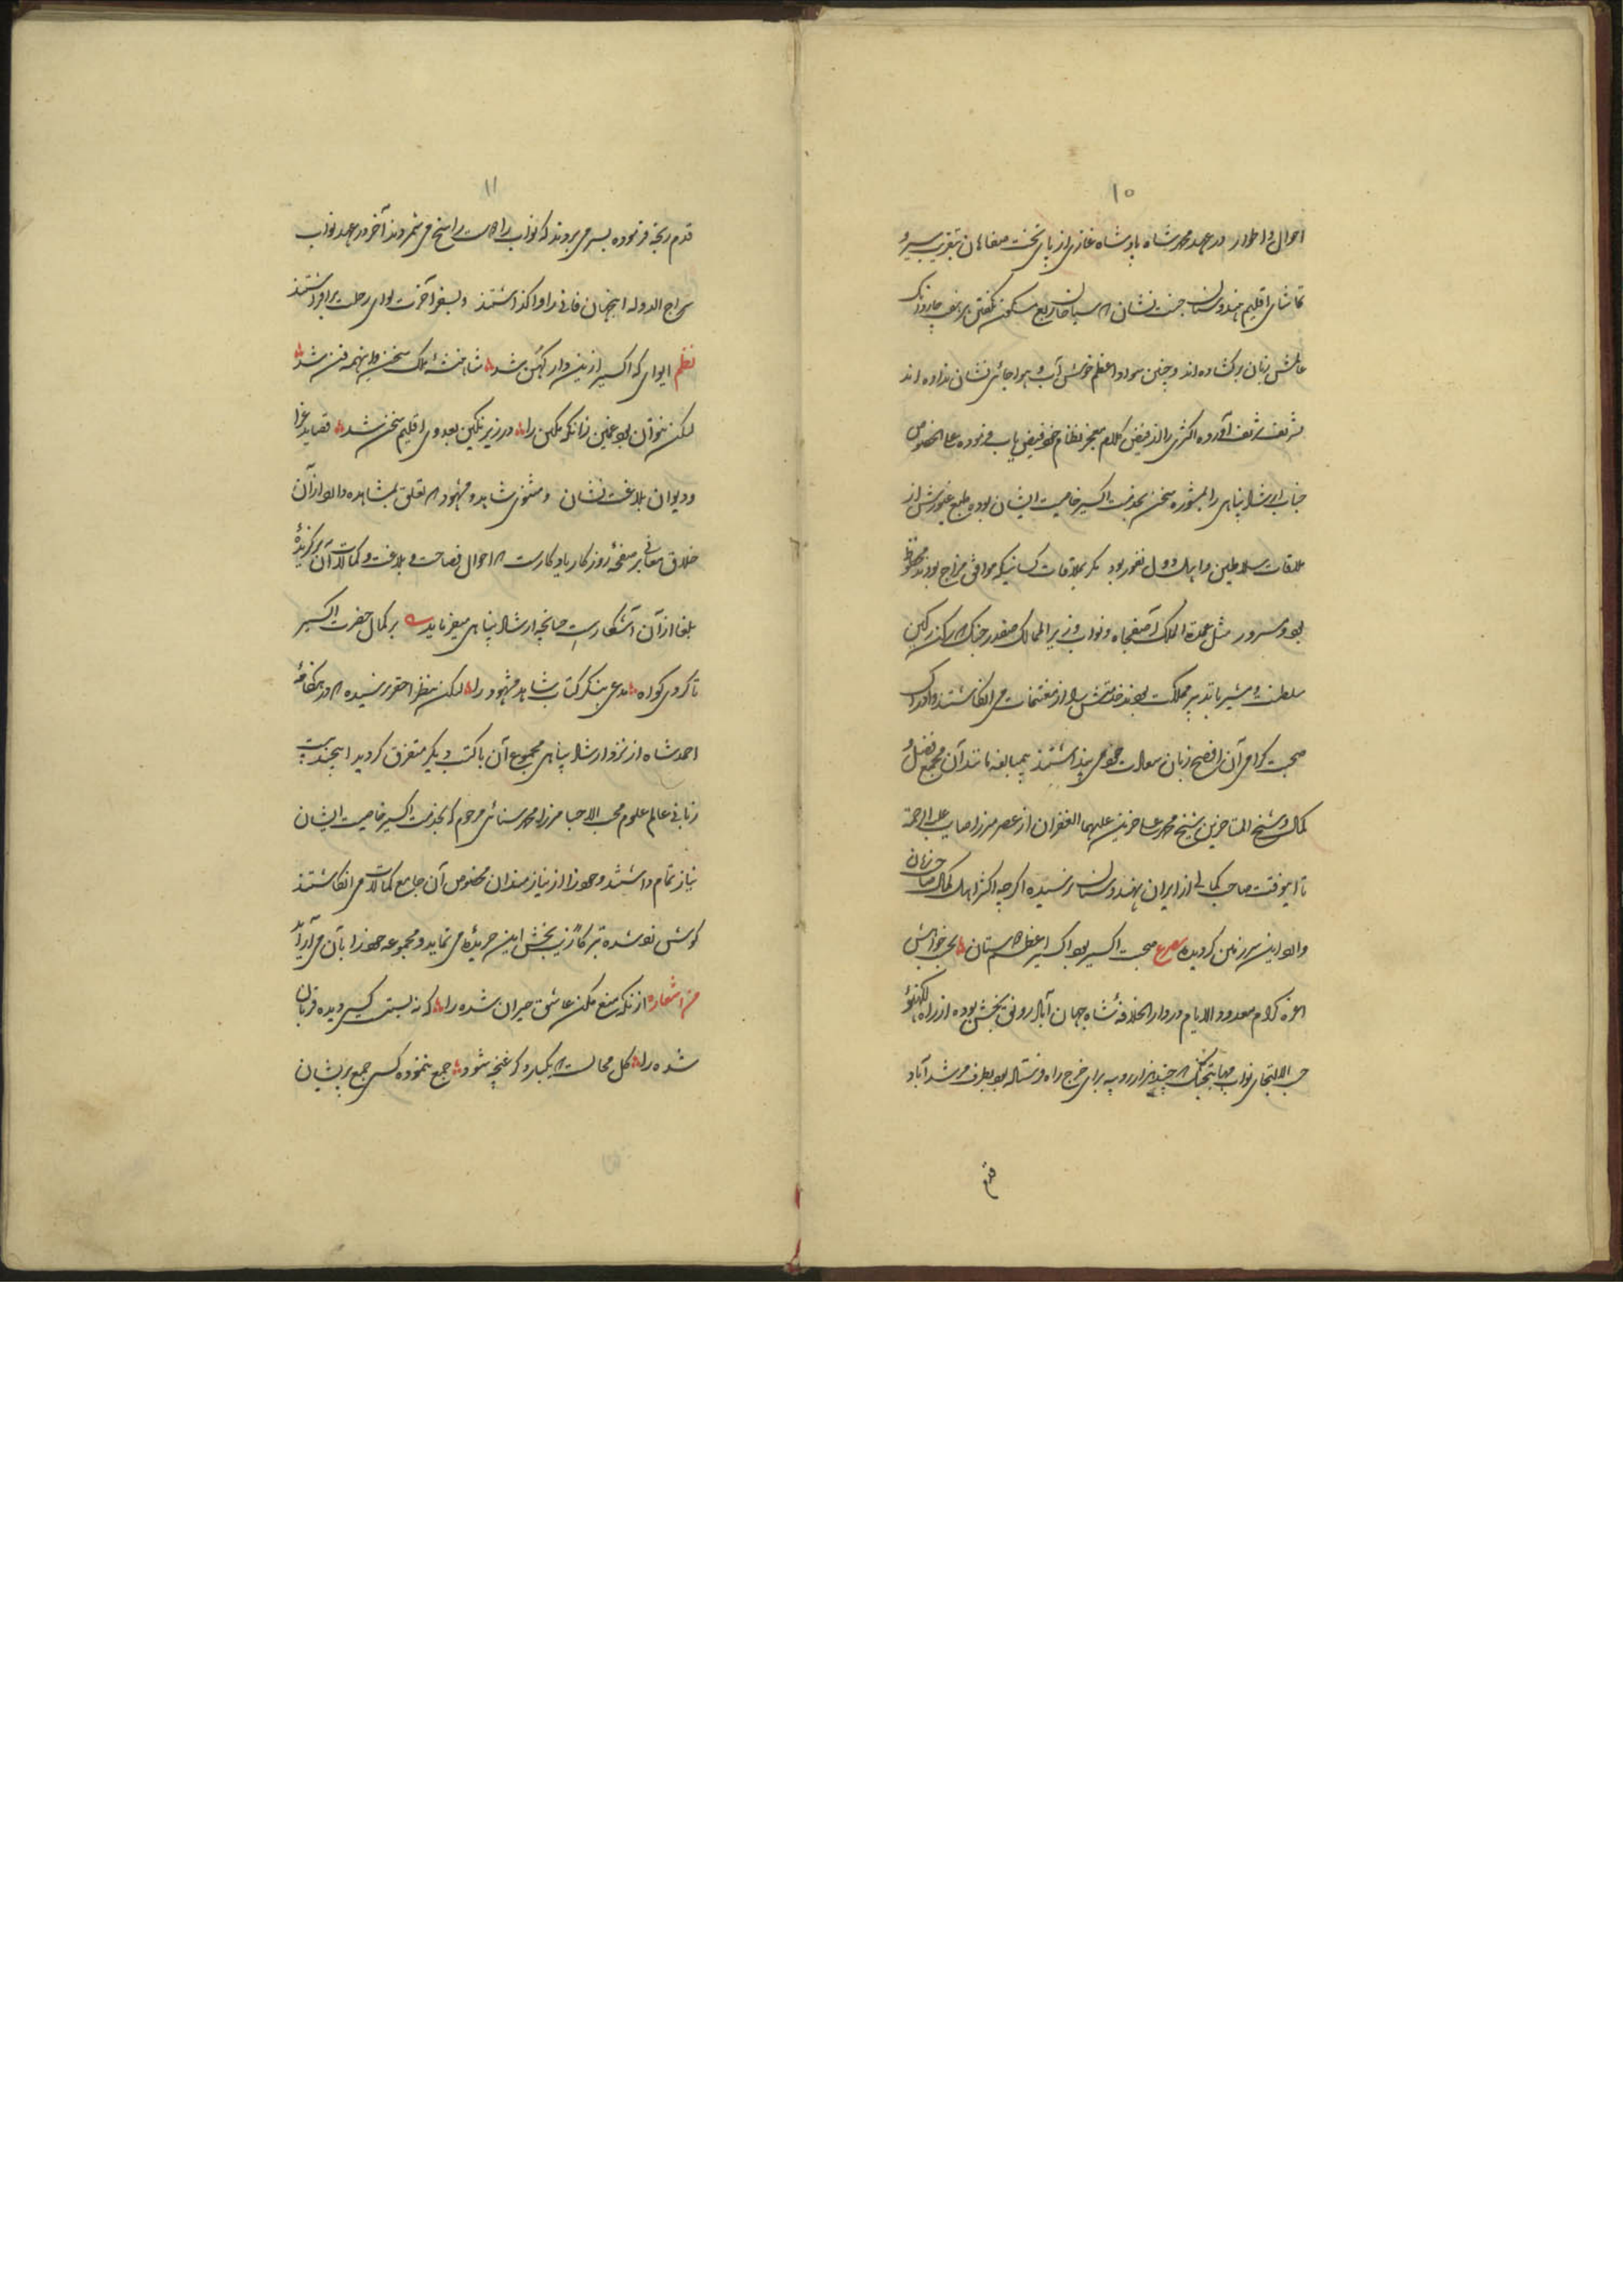 ۱۰
احوال و اطوار در عهد محمد شاه پادشاه غازی از پای تخت صفاهان بتقریب سیر و
تماشای اقلیم هندوستان جنت نشان که سیاحان ربع مسکون بگفتن
زبان برکشاده اند و چنین سواد اعظم خوش آب و هوا جائی نشان نداده اند
تشریف آورده اکثری را از فیض کلام معجز نظام خود فیض یاب فرموده علی الخصوص
جناب ارشاد پناهی را بمشوره سخن بخدمت اکسیر خاصیت ایشان بوده طبع غیورش از
ملاقات سلاطین و اهل دول نفور بود مگر بملاقات کسانیکه موافق مزاج بودند محظوظ
بود و مسرور مثل عمدة الملک آصفجاه و نواب وزیر الممالک صفدر جنگ که رکن رکین
سلطنت و مشیر با تدبیر مملکت بودند خدمتش را از مغتنمات می انگاشتند و ادراک
صحبت گرامی آن افصح زبان سعادت خود می پنداشتند بیمبالغه مانند آن مجمع فضل و
کمال و شیخ المتاخرین شیخ محمد علی حزین علیهما الغفران از عصر مرزا صایب علیه الرحمة
تا اینوقت صاحب کمالی از ایران بهندوستان نرسیده اگرچه اکثر اهل کمال صاحب زبان
وارد این سرزمین گردیده مصرع صحبت اکسیر بود اکسیر اعظم دوستان بحسب خواهش
اعزه کرام معدود الایام در دار الخلافه شاه جهان آباد رونق بخش بوده از راه لکهنؤ
حسب الالتجای نواب مهابتجنگ که چند هزار روپیه برای خرج راه فرستاده بود بطرف مرشد آباد
قدم
۱۱
قدم رنجه فرموده بسر می بردند که نواب راسخ می شمردند آخر در عهد نواب
سراج الدوله اینجهان فانی را واگذاشتند و بسفر آخرت لوای رحلت برافراشتند
نظم ایوای که اکسیر ازین دار کهن شد شاهنشه ملک سخن و اینهمه فن شد
لیکن نتوان بود غمین زانکه نگین را در زیر نگین بعد وی اقلیم سخن شد قصاید غرا
و دیوان بلاغت نشان و مثنوی شاهد و مشهود که تعلق بمشاهده دارد از آن
خلاق معانی بر صفحه روزگار یادگارست که احوال فصاحت و بلاغت و کمالات آن برگزیدهٔ
بلغا از آن آشکارست چنانچه ارشاد پناهی میفرماید بر کمال حضرت اکسیر
تا گردی گواه مدعی بنگر کتاب شاهد مشهود را لیکن بنظر احقر نرسیده که در هنگامهٔ
احمد شاه از نزد ارشاد پناهی مجموع آن با کتب دیگر متفرق گردید اینچند بیت
زبانی عالم علوم محب الاحبا مرزا محمد سنائی مرحوم که بخدمت اکسیر خاصیت ایشان
نیاز تمام داشتند و خود را از نیازمندان مخصوص آن جامع کمالات می انگاشتند
گوش زد شده تبرکاً زیب بخش این جریده می نماید و مجموعه خود را بآن می آراید
من اشعاره از نگه منع مکن عاشق حیران شده را که نه بستست کسی دیده قربان
شده را گل محالست که یکبار دگر غنچه شود جمع ننموده کسی جمع پریشان